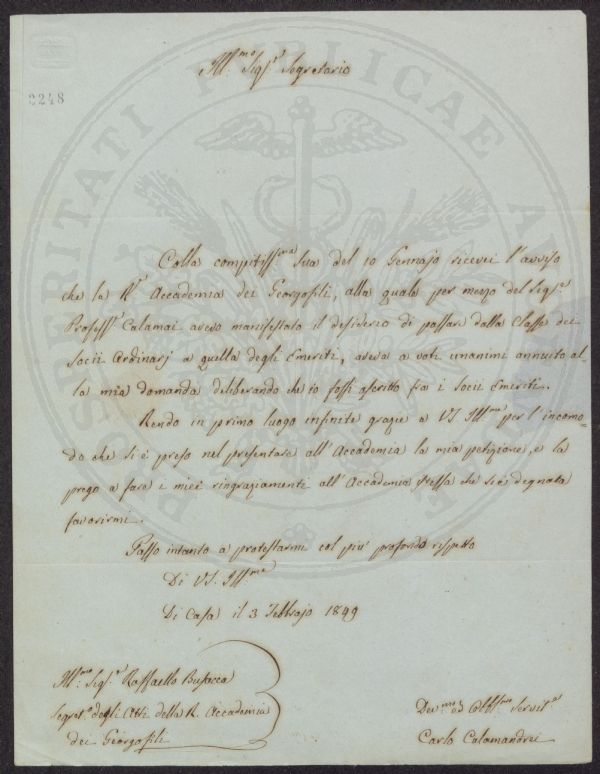 Ill.mo Sig.r Segretario
2248
PROSPERITATI PUBLICAE AUGENDAE
Colla compitiss.ma Sua del 10 Gennajo ricevei l'avviso
che la R.e Accademia dei Georgofili, alla quale per mezzo del Sig.r
Profess.r Calamai avevo manifestato il desiderio di passare dalla Classe dei
Socii Ordinarj a quella degli Emeriti, aveva a voti unanimi annuito al-
la mia domanda deliberando che io fossi ascritto fra i socii Emeriti.
Rendo in primo luogo infinite grazie a VS. Ill.ma per l'incomo-
do che si è preso nel presentare all'Accademia la mia petizione, e la
prego a fare i miei ringraziamenti all'Accademia stessa che si è degnata
favorirmi.
Passo intanto a protestarmi col più profondo rispetto
Di VS. Ill.ma
Di Casa il 3 Febbrajo 1849
Ill.mo Sig.r Raffaello Busacca
Segret.o degli Atti della R. Accademia
dei Georgofili
Dev.mo ed Obb.mo Servit.e
Carlo Calamandrei